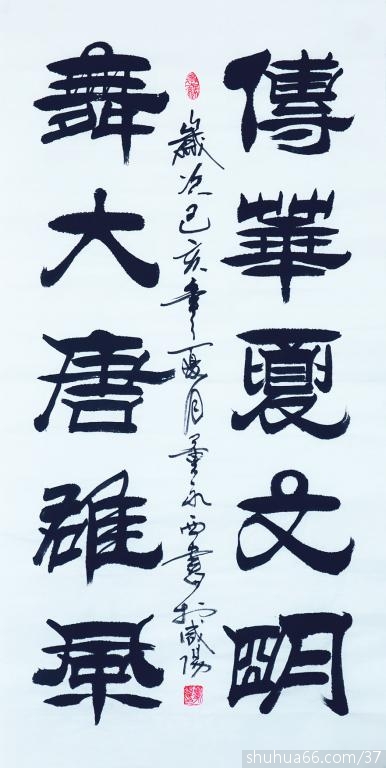 傳華夏文明
舞大唐雄風
歲次己亥年夏月董永西書於咸陽
shuhua66.com/37